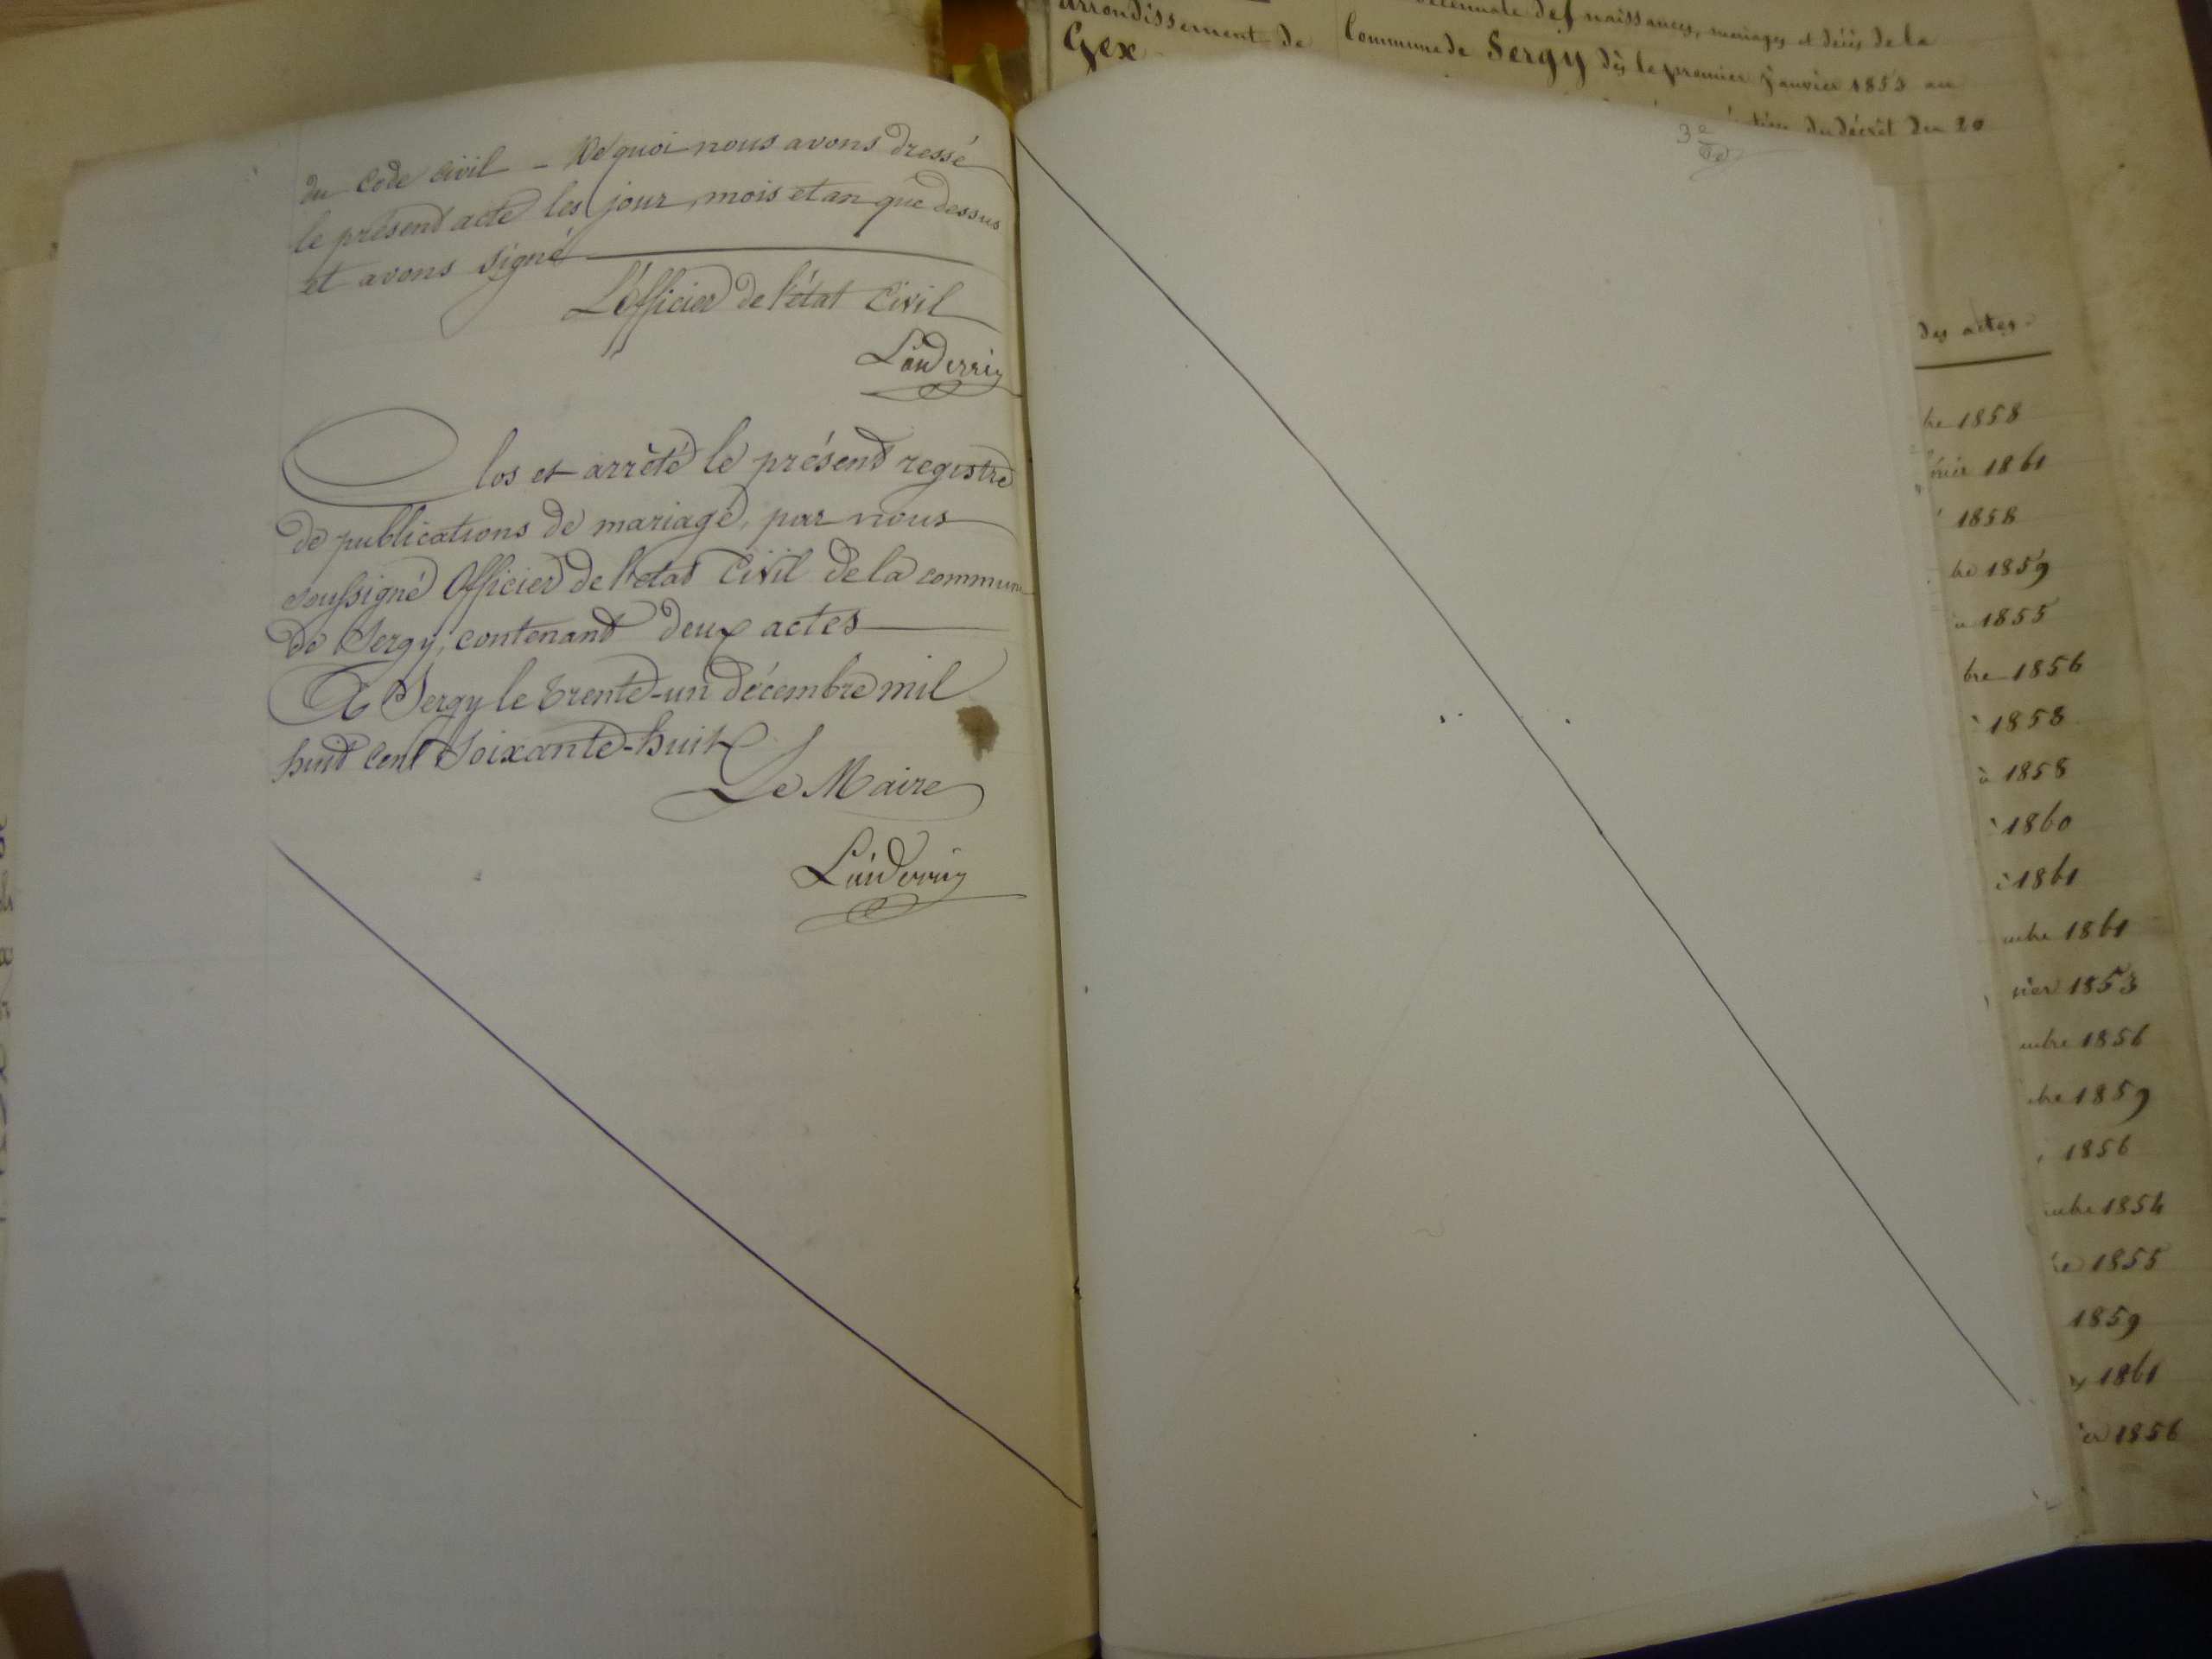 du Code Civil – De quoi nous avons dressé
le présent acte les jour, mois et an que dessus
et avons signé
L'Officier de l'état Civil
Clos et arrêté le présent registre
de publications de mariage, par nous
soussigné Officier de l'état Civil de la commune
de Sergy, contenant deux actes
A Sergy le trente-un décembre mil
huit cent soixante-huit
Le Maire
3e
arrondissement de
Gex
des naissances, mariages et décès de la
Commune de Sergy dès le premier Janvier 1853 au
du décrêt du 20
des actes
bre 1858
1861
1858
bre 1859
1855
bre 1856
1858
1858
1860
1861
mbre 1861
vier 1853
mbre 1856
bre 1859
1856
mbre 1854
1855
1859
1861
1856